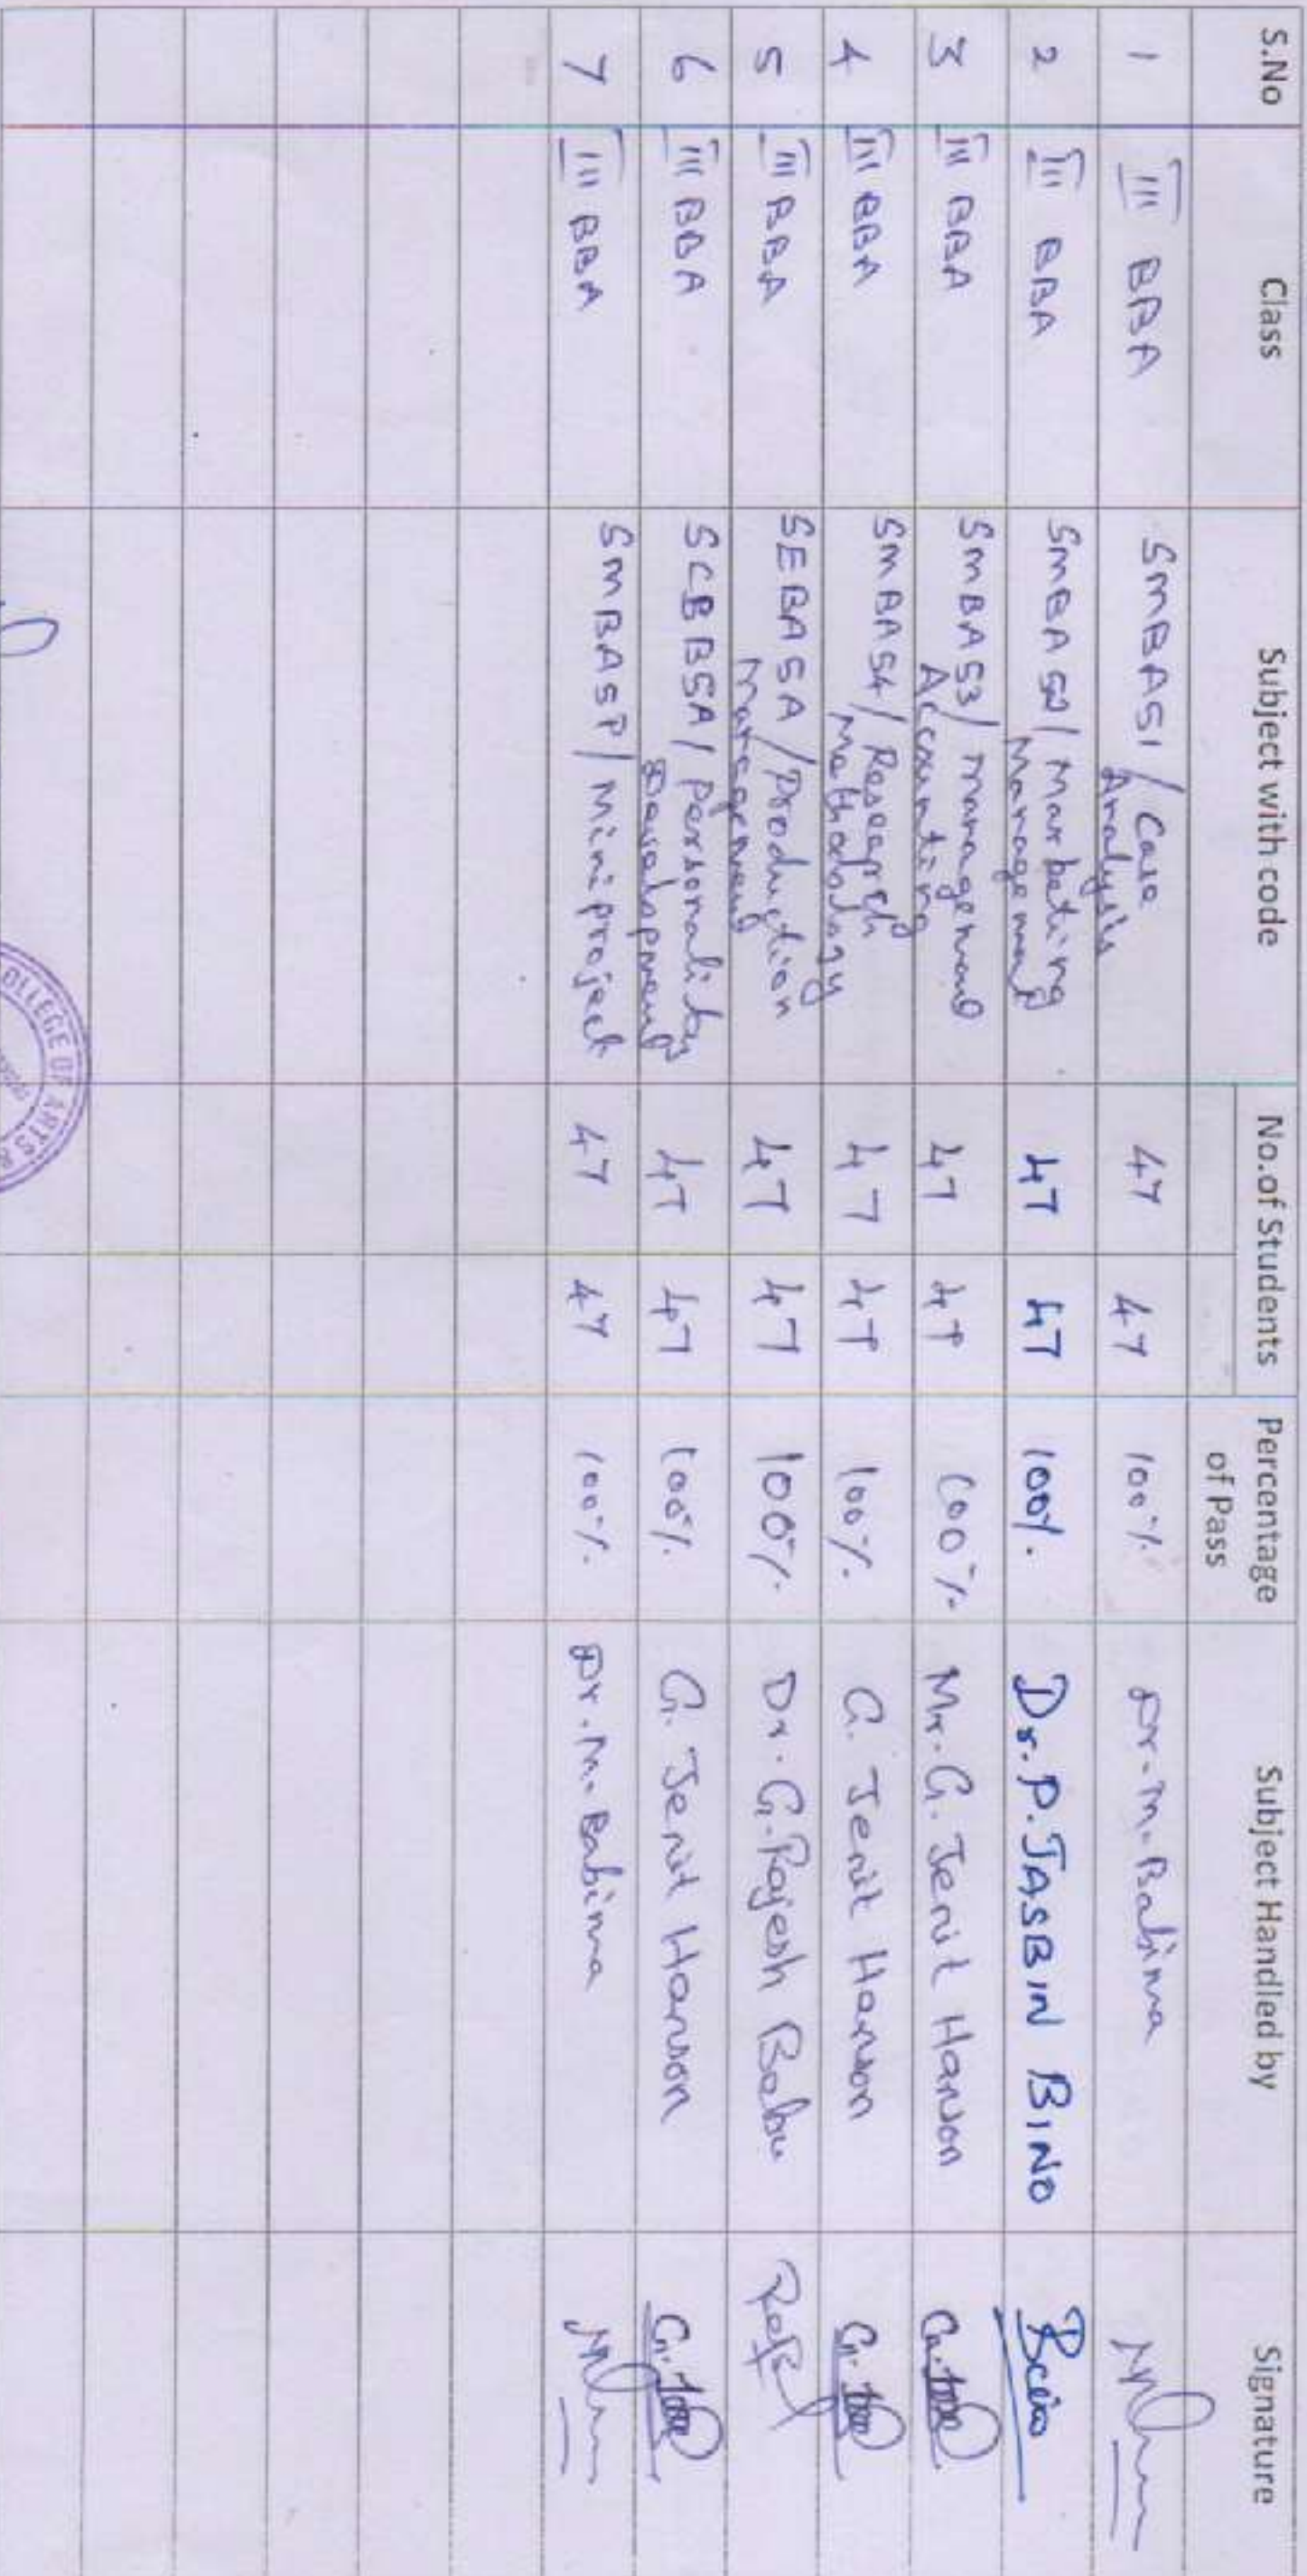 S.No Class Subject with code No.of Students Percentage of Pass Subject Handled by Signature
1 III BBA SMBA51 / Case Analysis 47 47 100% Dr. M. Babima
2 III BBA SMBA52 / Marketing Management 47 47 100%. Dr. P. JASBIN BINO
3 III BBA SMBA53 / Management Accounting 47 47 100% Mr. G. Jenit Hanson
4 III BBA SMBA54 / Research Methodology 47 47 100% G. Jenit Hanson
5 III BBA SEBA5A / Production Management 47 47 100% Dr. G. Rajesh Babu
6 III BBA SCBB5A / Personality Development 47 47 100% G. Jenit Hanson
7 III BBA SMBA5P / Mini project 47 47 100% Dr. M. Babima
COLLEGE OF ARTS &